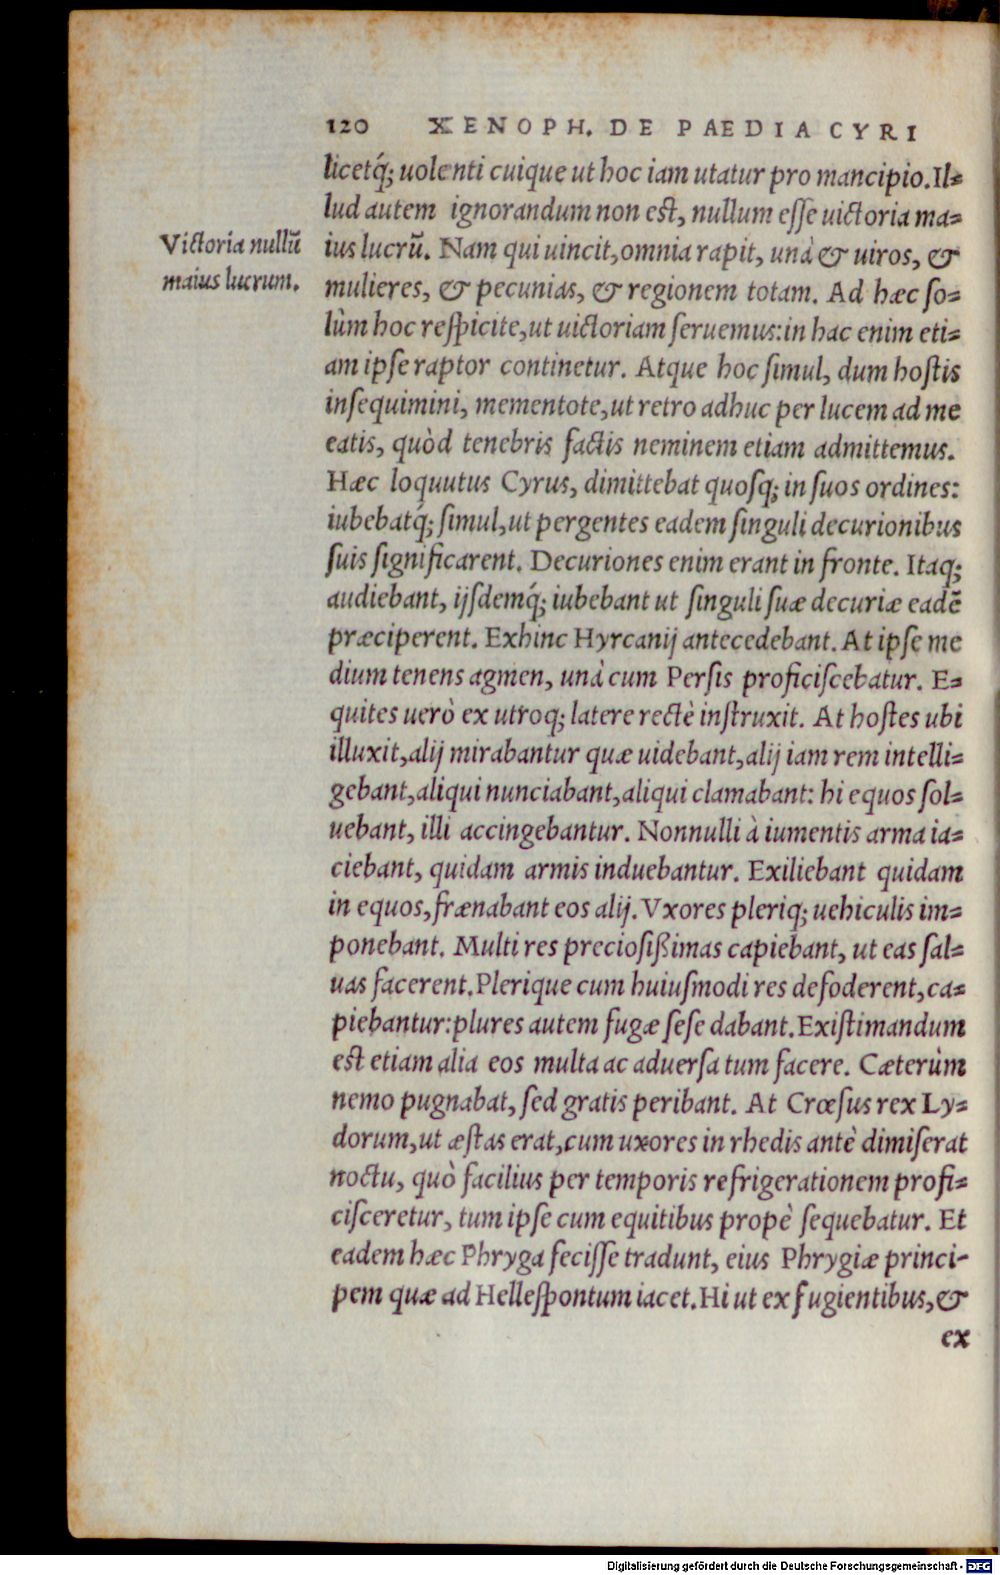 120 XENOPH. DE PAEDIA CYRI
licetq́; uolenti cuique ut hoc iam utatur pro mancipio. Il=
lud autem ignorandum non est, nullum esse uictoria ma=
Victoria nullũ
maius lucrum.
ius lucrũ. Nam qui uincit, omnia rapit, unà & uiros, &
mulieres, & pecunias, & regionem totam. Ad hæc so=
lùm hoc respicite, ut uictoriam seruemus: in hac enim eti=
am ipse raptor continetur. Atque hoc simul, dum hostis
insequimini, mementote, ut retro adhuc per lucem ad me
eatis, quòd tenebris factis neminem etiam admittemus.
Hæc loquutus Cyrus, dimittebat quosq; in suos ordines:
iubebatq́; simul, ut pergentes eadem singuli decurionibus
suis significarent. Decuriones enim erant in fronte. Itaq;
audiebant, ijsdemq́; iubebant ut singuli suæ decuriæ eadẽ
præciperent. Exhinc Hyrcanij antecedebant. At ipse me
dium tenens agmen, unà cum Persis proficiscebatur. E=
quites uerò ex utroq; latere rectè instruxit. At hostes ubi
illuxit, alij mirabantur quæ uidebant, alij iam rem intelli=
gebant, aliqui nunciabant, aliqui clamabant: hi equos sol=
uebant, illi accingebantur. Nonnulli à iumentis arma ia=
ciebant, quidam armis induebantur. Exiliebant quidam
in equos, frænabant eos alij. Vxores pleriq; uehiculis im=
ponebant. Multi res preciosißimas capiebant, ut eas sal=
uas facerent. Plerique cum huiusmodi res defoderent, ca=
piebantur: plures autem fugæ sese dabant. Existimandum
est etiam alia eos multa ac aduersa tum facere. Cæterùm
nemo pugnabat, sed gratis peribant. At Crœsus rex Ly=
dorum, ut æstas erat, cum uxores in rhedis antè dimiserat
noctu, quò facilius per temporis refrigerationem profi=
cisceretur, tum ipse cum equitibus propè sequebatur. Et
eadem hæc Phryga fecisse tradunt, eius Phrygiæ princi-
pem quæ ad Hellespontum iacet. Hi ut ex fugientibus, &
ex
Digitalisierung gefördert durch die Deutsche Forschungsgemeinschaft - DFG